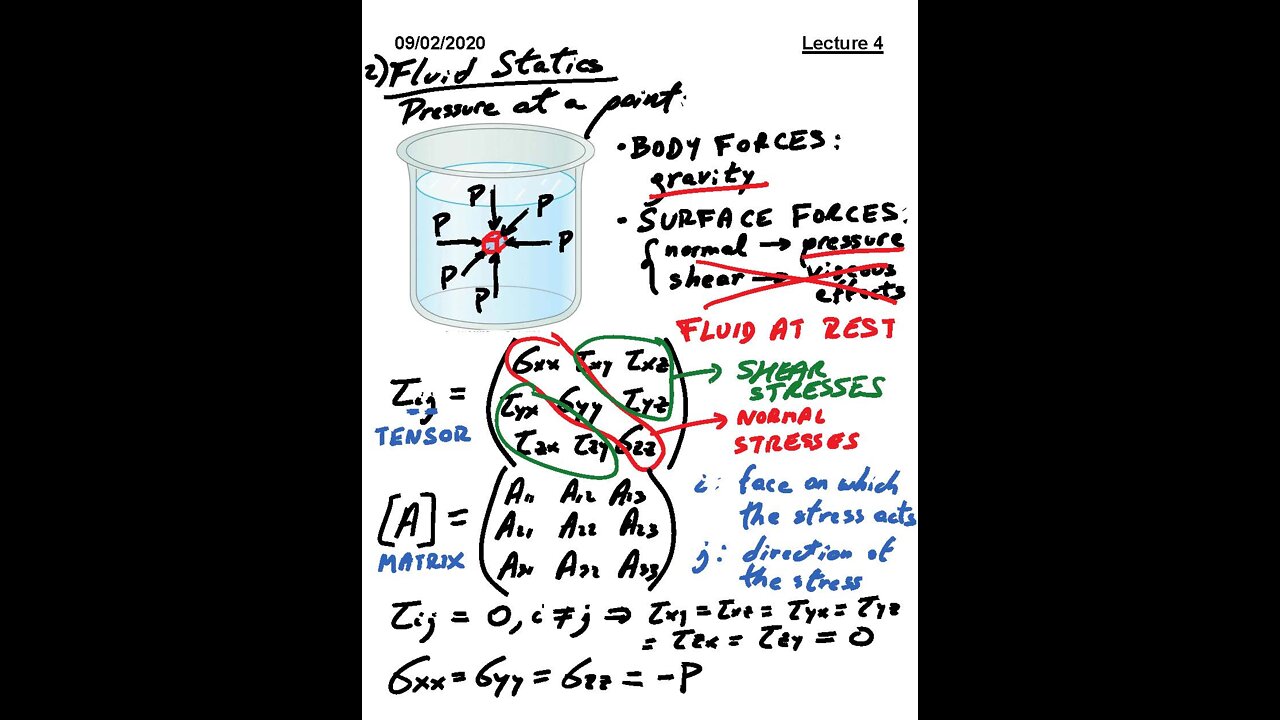 09/02/2020
Lecture 4
2) Fluid Statics
Pressure at a point:
• BODY FORCES:
gravity
• SURFACE FORCES:
normal → pressure
shear → viscous
effects
FLUID AT REST
P
P
P
P
P
P
τij = ( σxx τxy τxz
τyx σyy τyz
τzx τzy σzz )
TENSOR
→ SHEAR
STRESSES
→ NORMAL
STRESSES
[A] = ( A11 A12 A13
A21 A22 A23
A31 A32 A33 )
MATRIX
i: face on which
the stress acts
j: direction of
the stress
τij = 0, i ≠ j ⇒ τxy = τxz = τyx = τyz
= τzx = τzy = 0
σxx = σyy = σzz = -P